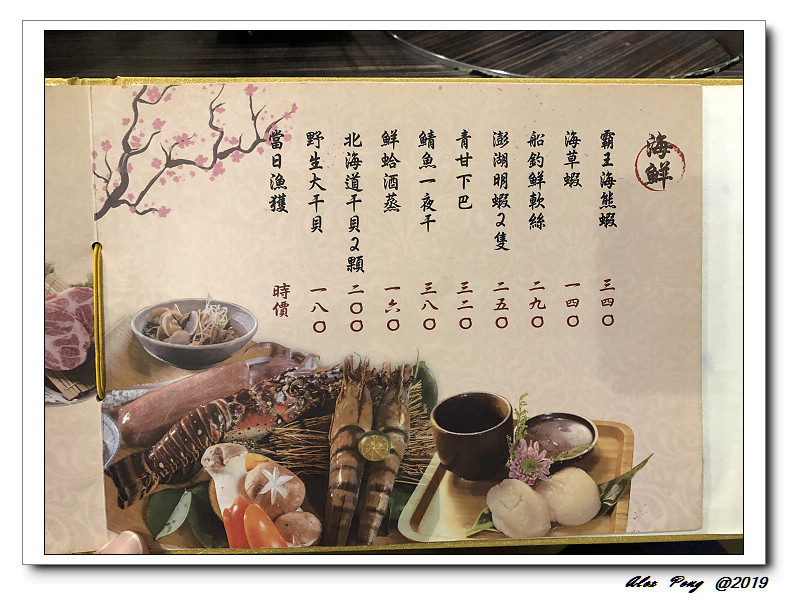 海鮮
霸王海熊蝦 三四〇
海草蝦 一四〇
船釣鮮軟絲 二九〇
澎湖明蝦2隻 二五〇
青甘下巴 三二〇
鯖魚一夜干 三八〇
鮮蛤酒蒸 一六〇
北海道干貝2顆 二〇〇
野生大干貝 一八〇
當日漁獲 時價
Alex Peng @2019